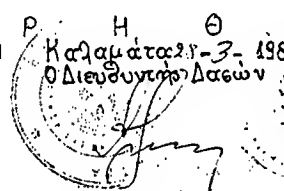 Ρ Η Θ
Καλαμάτα 28-3-198
Ο Διευθυντής Δασών